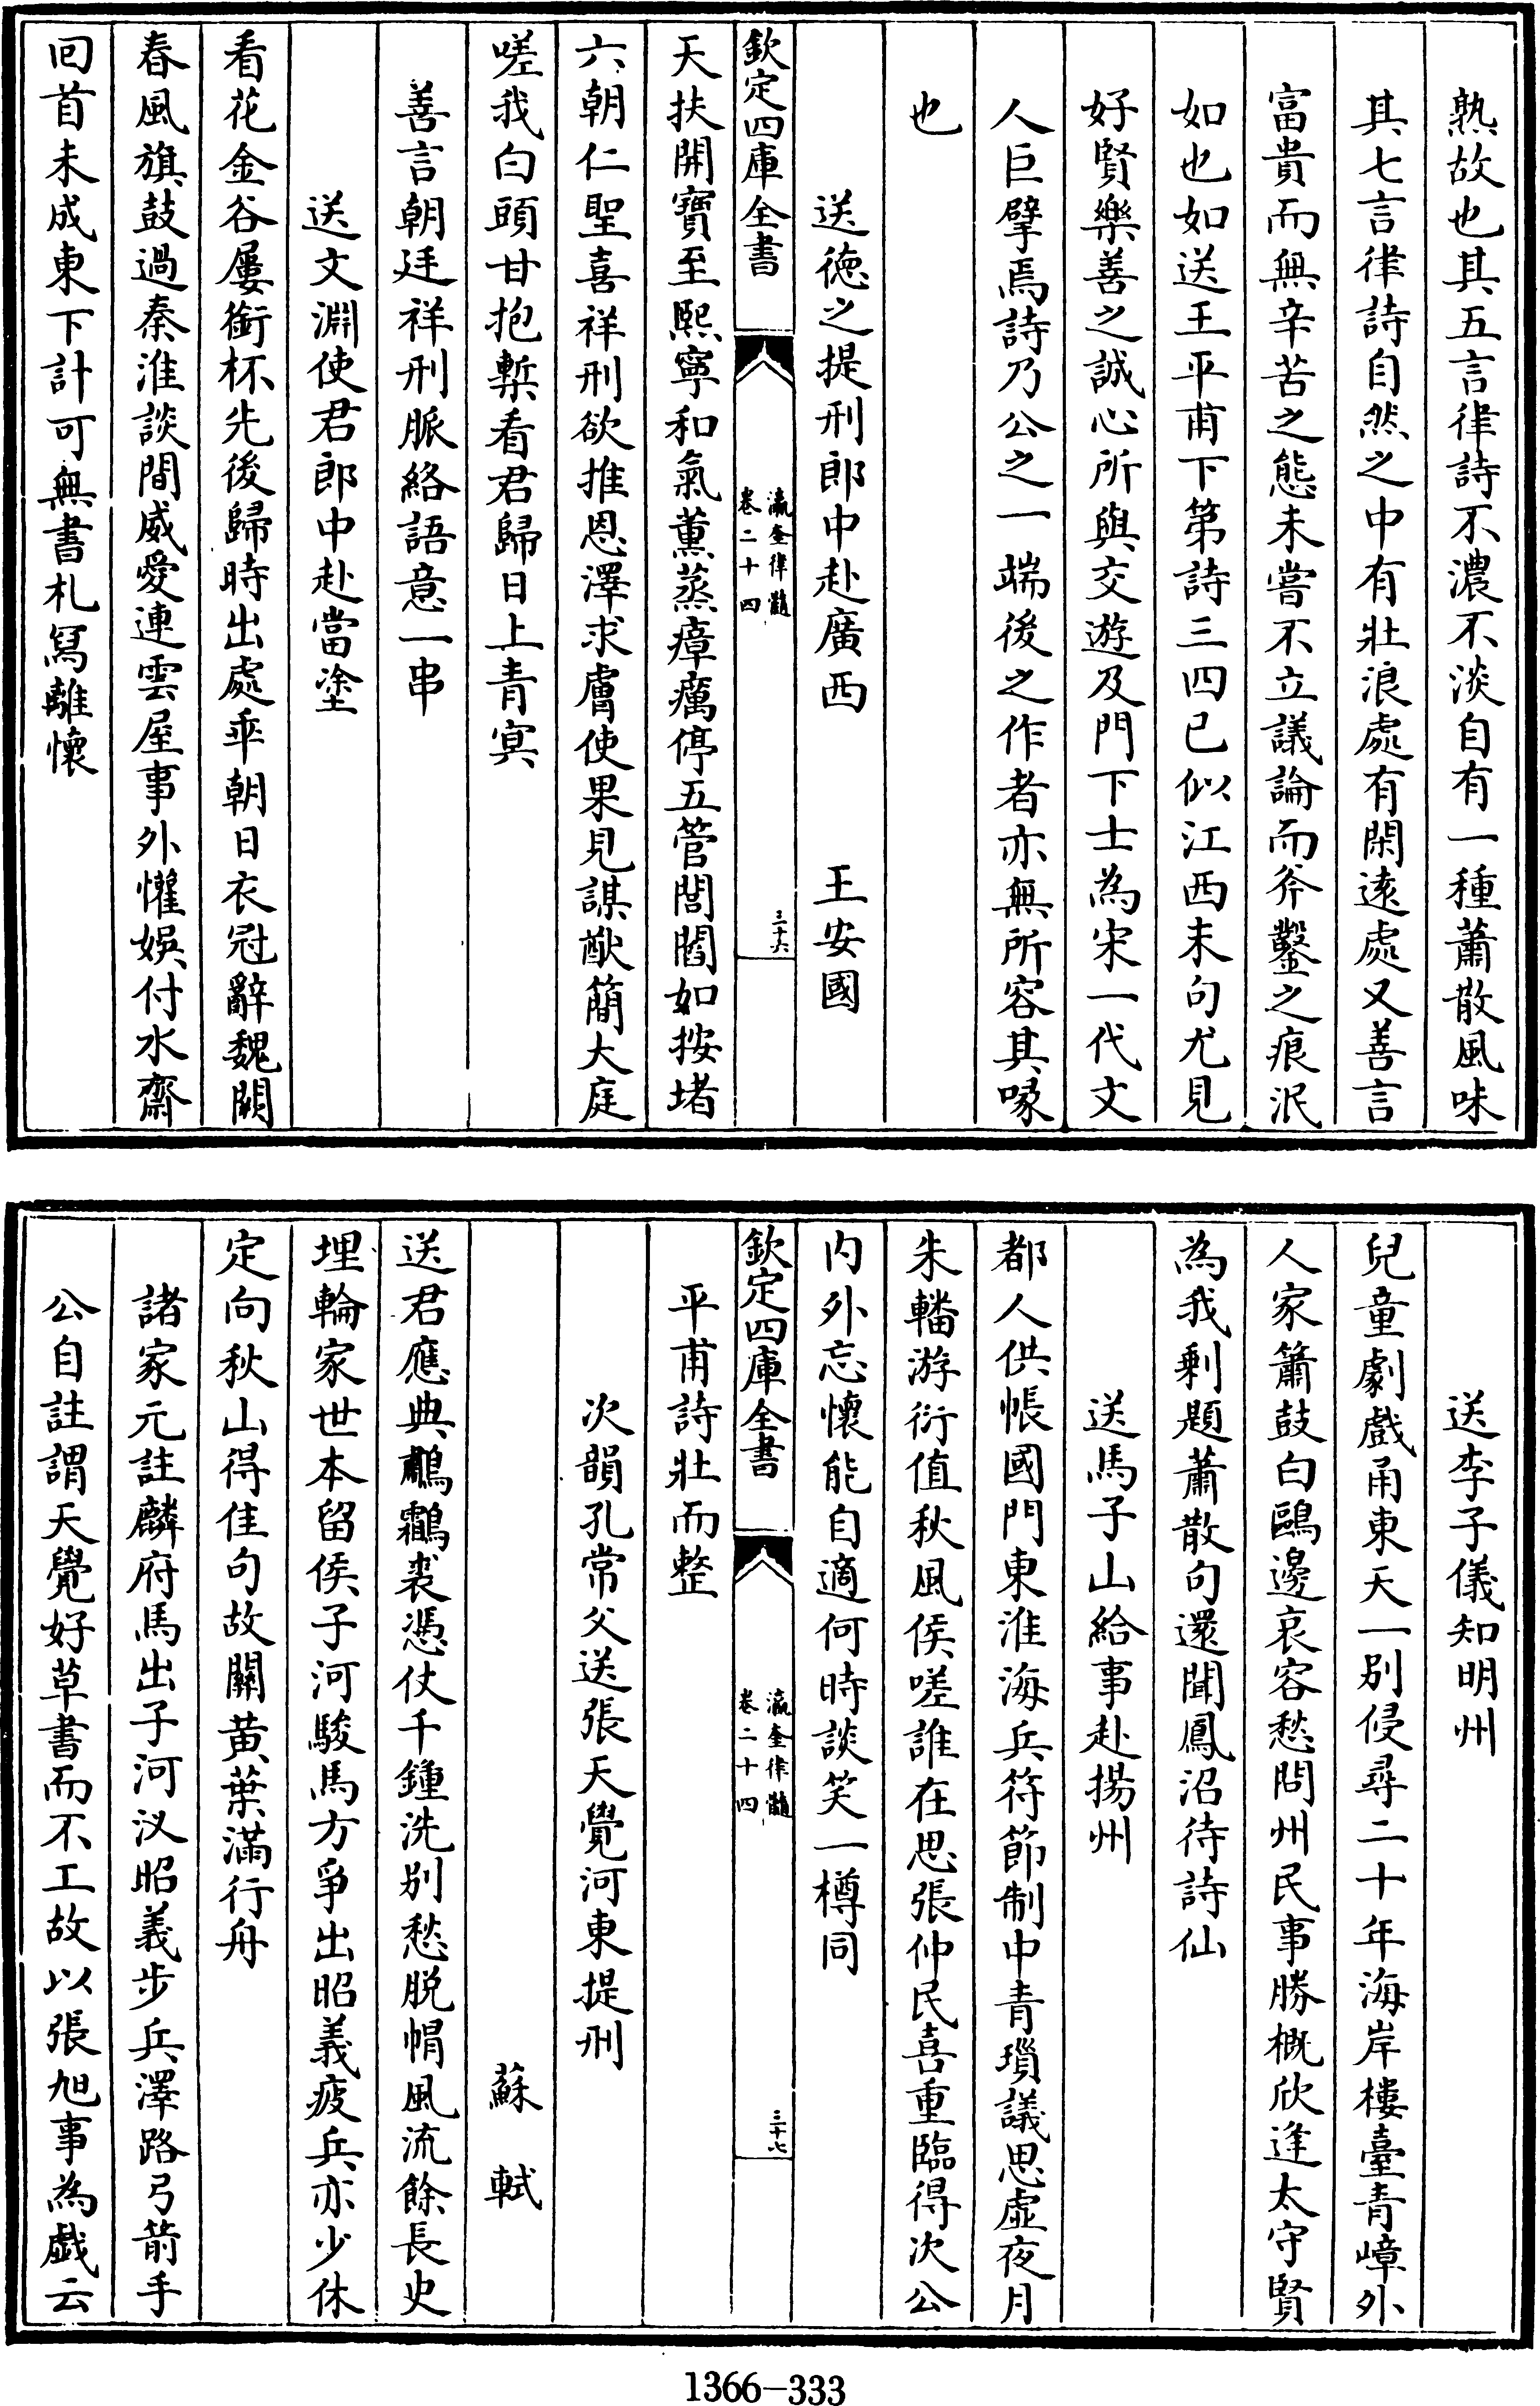 熟故也其五言律詩不濃不淡自有一種蕭散風味
其七言律詩自然之中有壯浪處有閑遠處又善言
富貴而無辛苦之態未嘗不立議論而斧鑿之痕泯
如也如送王平甫下第詩三四已似江西末句尤見
好賢樂善之誠心所與交遊及門下士為宋一代文
人巨擘焉詩乃公之一端後之作者亦無所容其喙
也
送德之提刑郎中赴廣西 王安國
欽定四庫全書 瀛奎律髓 卷二十四 三十六
天扶開寶至熙寧和氣薰蒸瘴癘停五管閭閻如按堵
六朝仁聖喜祥刑欲推恩澤求膚使果見謀猷簡大庭
嗟我白頭甘抱槧看君歸日上青冥
善言朝廷祥刑脈絡語意一串
送文淵使君郎中赴當塗
看花金谷屢銜杯先後歸時出處乖朝日衣冠辭魏闕
春風旗鼓過秦淮談間威愛連雲屋事外懽娛付水齋
回首未成東下計可無書札冩離懷
送李子儀知明州
兒童劇戲甬東天一別侵尋二十年海岸樓臺青嶂外
人家簫鼓白鷗邊哀容愁問州民事勝概欣逢太守賢
為我剩題蕭散句還聞鳳沼待詩仙
送馬子山給事赴揚州
都人供帳國門東淮海兵符節制中青瑣議思虛夜月
朱轓游衍值秋風侯嗟誰在思張仲民喜重臨得次公
内外忘懷能自適何時談笑一樽同
欽定四庫全書 瀛奎律髓 卷二十四 三十七
平甫詩壯而整
次韻孔常父送張天覺河東提刑
蘇軾
送君應典鷫鸘裘憑仗千鍾洗別愁脱帽風流餘長史
埋輪家世本留侯子河駿馬方爭出昭義疲兵亦少休
定向秋山得佳句故關黄葉滿行舟
諸家元註麟府馬出子河汊昭義步兵澤路弓箭手
公自註謂天覺好草書而不工故以張旭事為戯云
1366-333